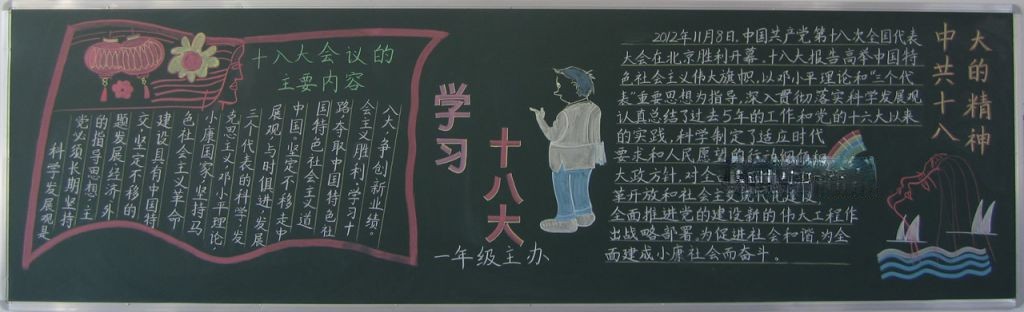 十八大会议的
主要内容
科学发展观是
党必须长期坚持
的指导思想,主
题发展经济,外
交,坚定不移的
建设具有中国特
色社会主义革命
小康国家,坚持马
克思主义,邓小平理论
三个代表的科学发
展观,与时俱进,发展
中国,坚定不移走中
国特色社会主义道
路,夺取中国特色社
会主义胜利!学习十
八大,争创新业绩。
学习
十八大
一年级主办
2012年11月8日,中国共产党第十八次全国代表
大会在北京胜利开幕,十八大报告高举中国特
色社会主义伟大旗帜,以邓小平理论和"三个代
表"重要思想为指导,深入贯彻落实科学发展观
认真总结了过去5年的工作和党的十六大以来
的实践,科学制定了适应时代
要求和人民愿望的行
大政方针,对全
革开放和社会主义现代化建设,
全面推进党的建设新的伟大工程作
出战略部署,为促进社会和谐,为全
面建成小康社会而奋斗。
中共十八
大的精神